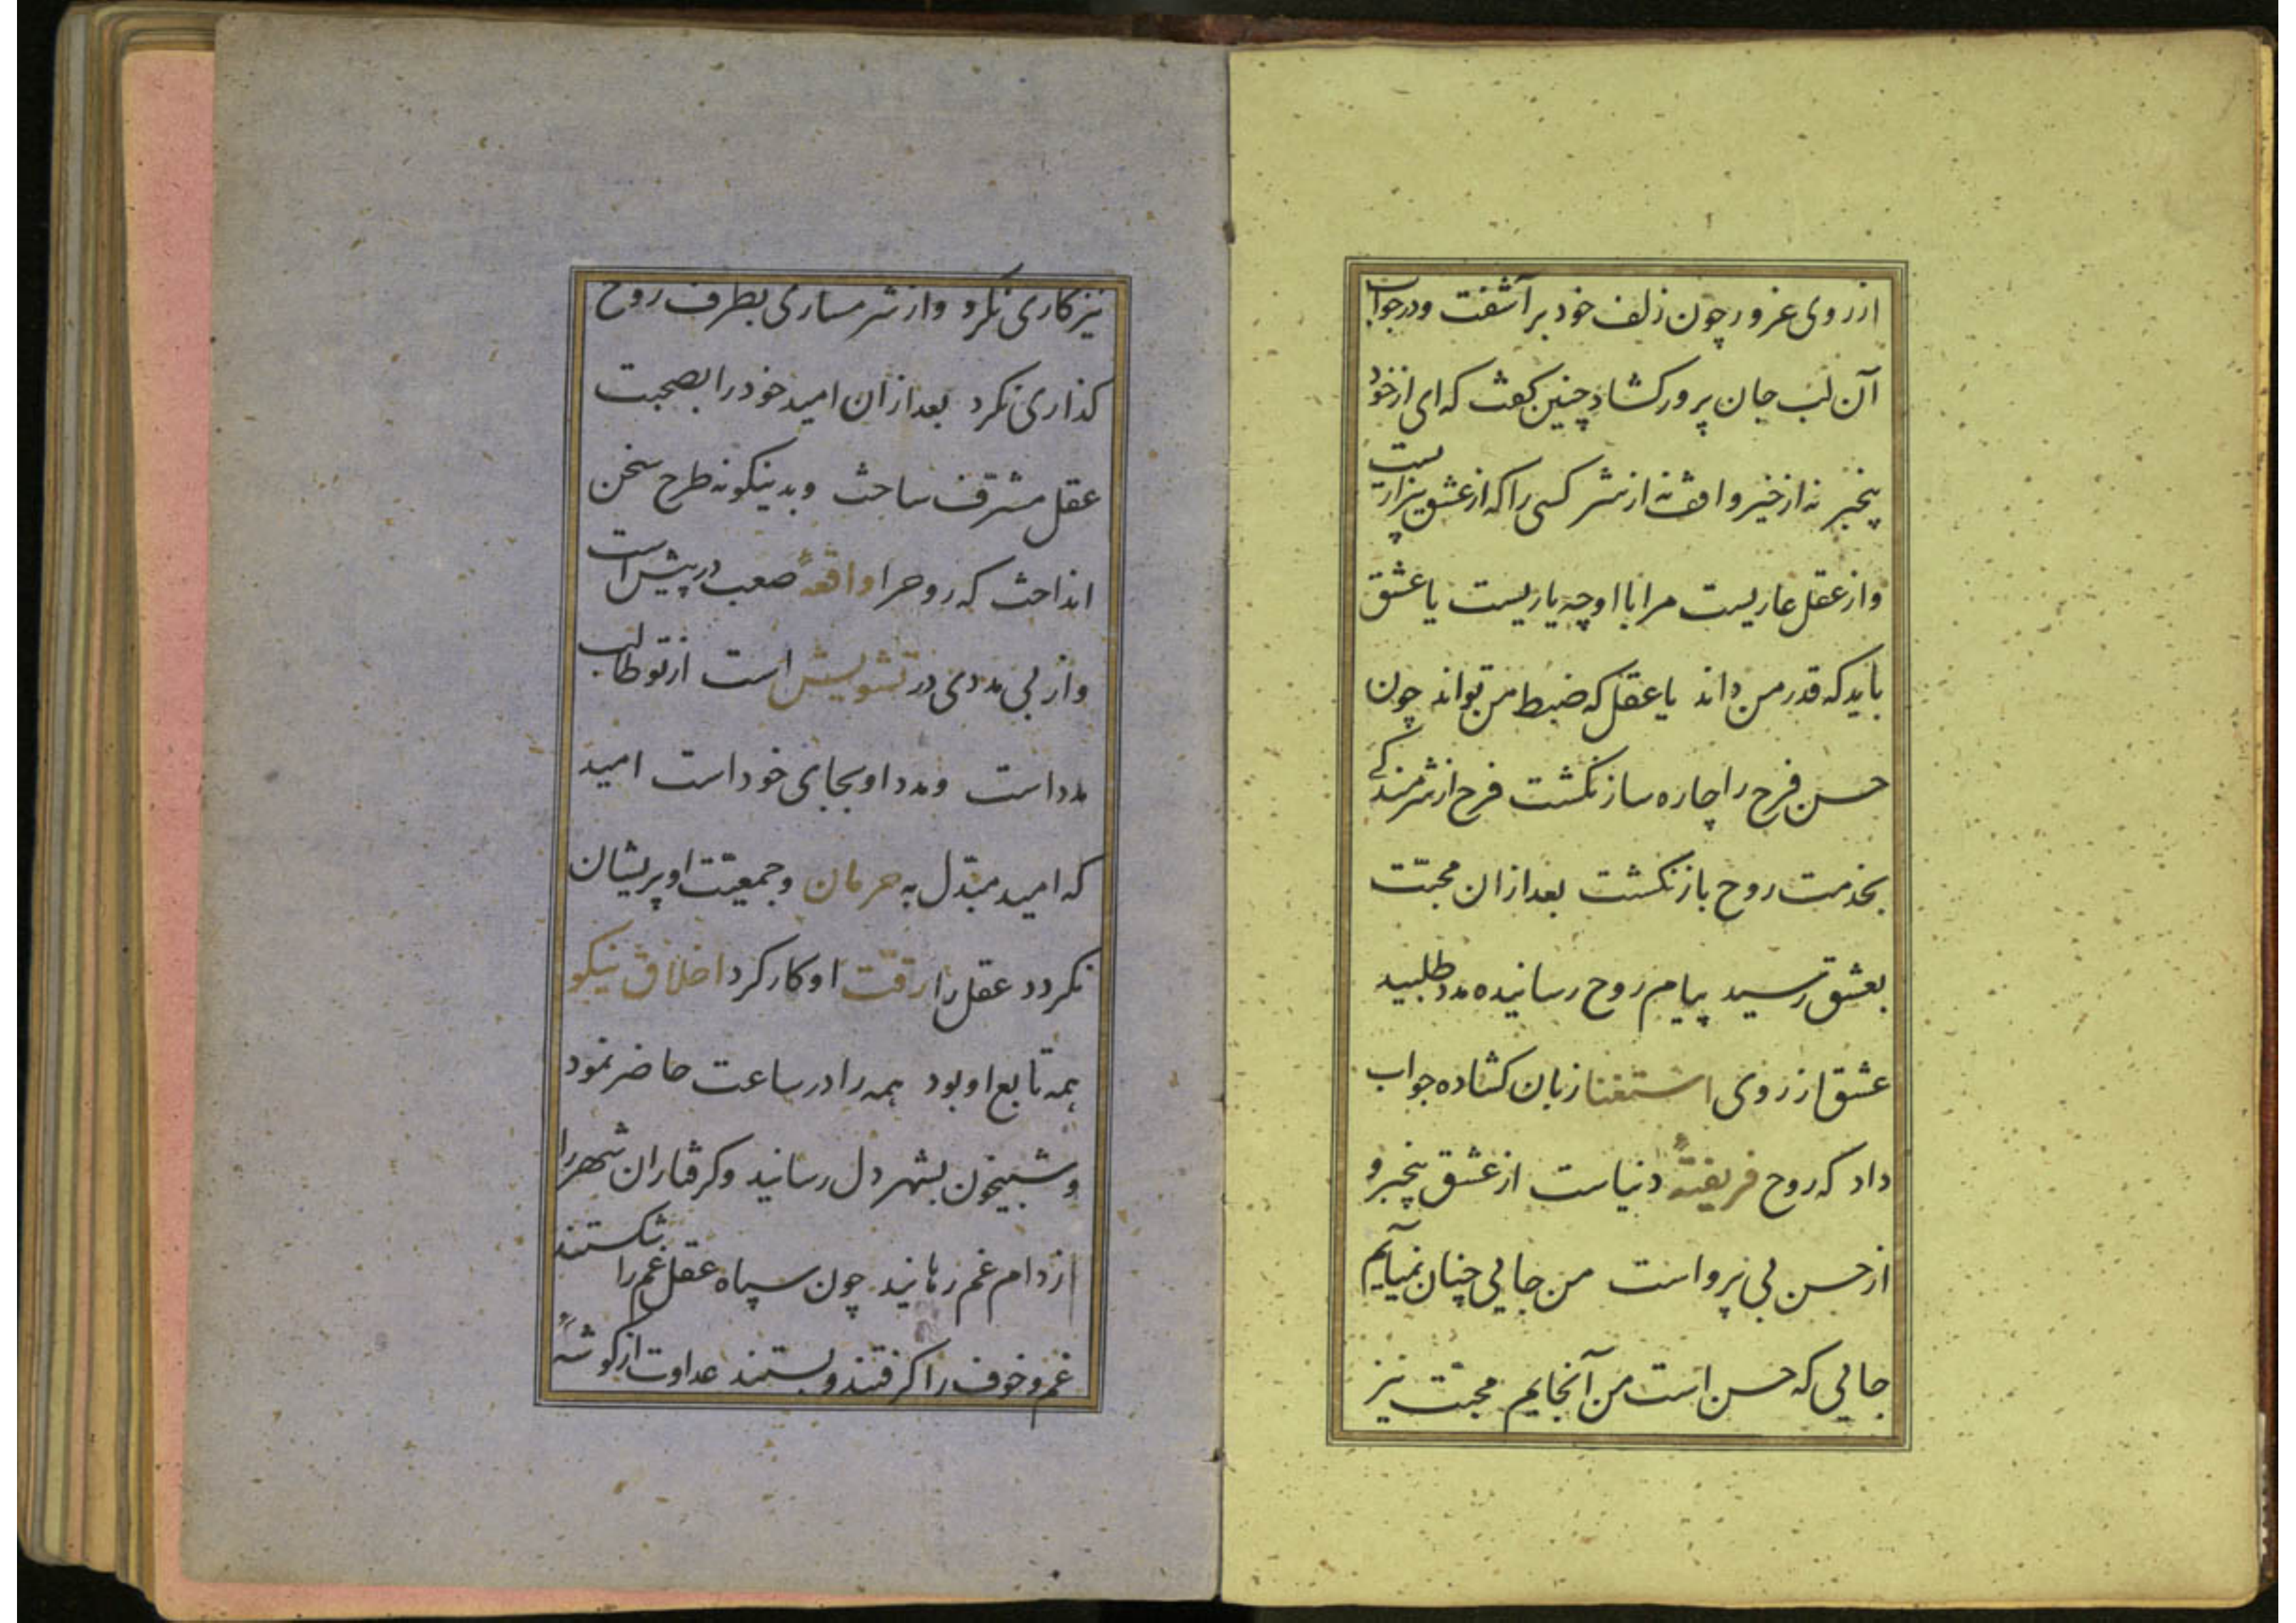 از روی غرور چون زلف خود برآشفت ودر جواب
آن لب جان پرور کشاد چنین کفت که ای از خود
بیخبر نه از خیر واقف نه از شر کسی را که از عشق بیزاریست
واز عقل عاریست مرا با او چه یاریست یا عشق
باید که قدر من داند یا عقل که ضبط من تواند چون
حسن فرح را چاره ساز نکشت فرح از شرمندکی
بخدمت روح باز نکشت بعد از ان محبّت
بعشق رسید پیام روح رسانیده مدد طلبید
عشق از روی استغنا زبان کشاده جواب
داد که روح فریفتهٔ دنیاست از عشق بیخبر و
از حسن بی پرواست من جایی چنان نمیآیم
جایی که حسن است من آنجایم محبت نیز
نیز کاری نکرد واز شرمساری بطرف روح
کذاری نکرد بعد از ان امید خود را بصحبت
عقل مشرف ساخت وبدینکونه طرح سخن
انداخت که روحرا واقعهٔ صعب در پیش است
واز بی مددی در تشویش است از تو طالب
مدد است ومدد او بجای خود است امید
که امید مبدّل به حرمان وجمعیّت او پریشان
نکردد عقل را رقّت او کار کرد اخلاق نیکو
همه تابع او بود همه را در ساعت حاضر نمود
وشبیخون بشهر دل رسانید وکرفتاران شهر را
از دام غم رهانید چون سپاه عقل غم را شکستند
غم وخوف را کرفتند وبستند عداوت از کوشهٔ